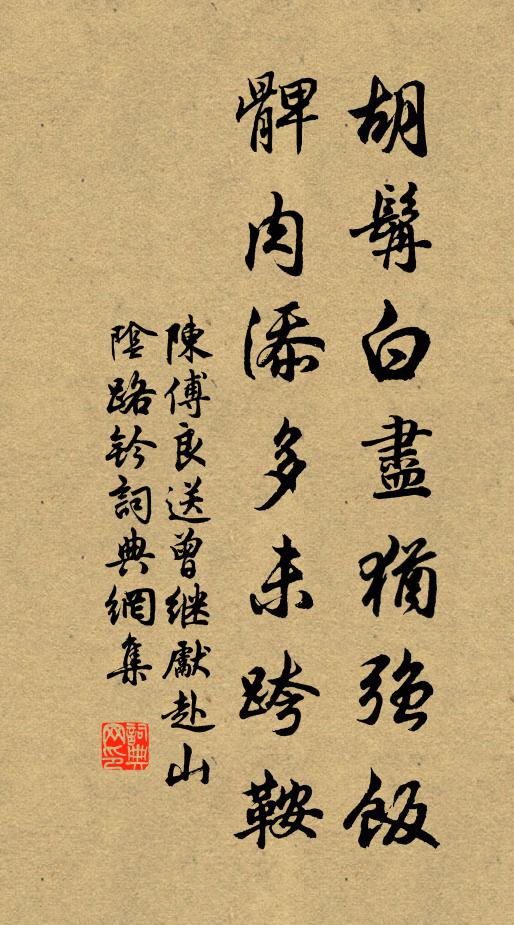 胡鬢白盡猶強飯
髀肉添多未跨鞍
陳傅良送曾继獻赴山
陰路鈐詞典網集
詞典
网印